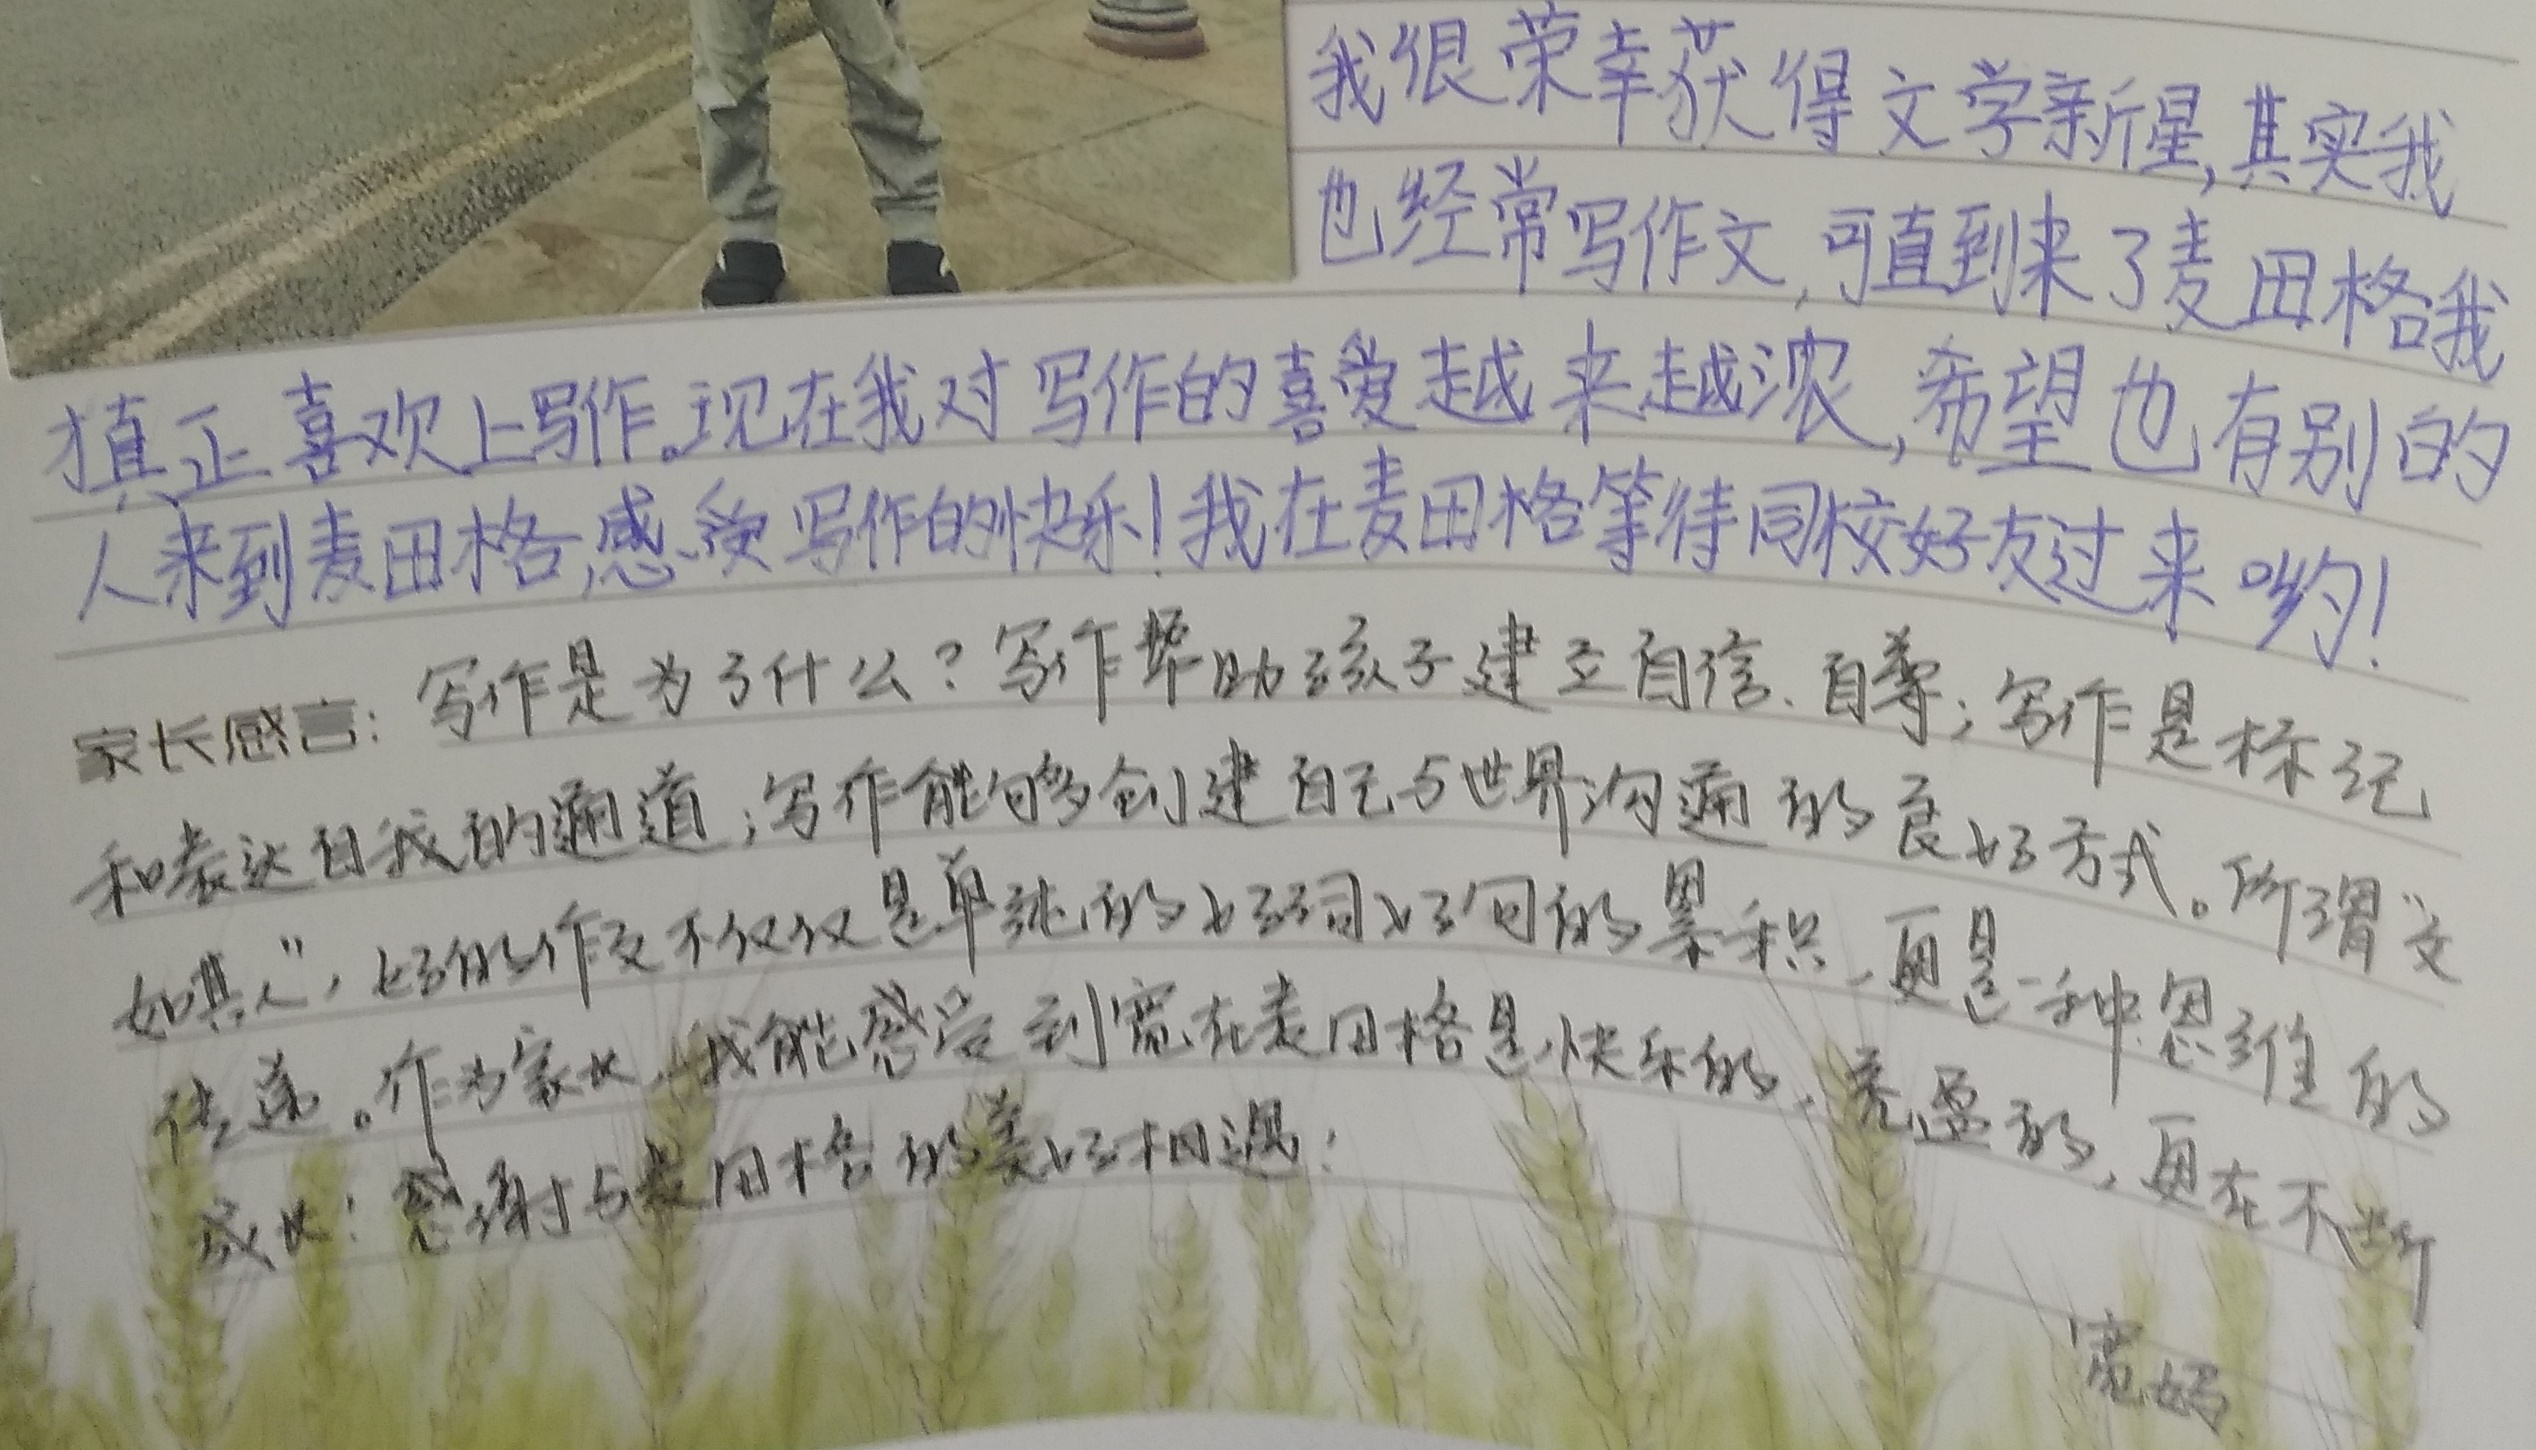 我很荣幸获得文学新星,其实我
也经常写作文,可直到来了麦田格我
才真正喜欢上写作。现在我对写作的喜爱越来越浓,希望也有别的
人来到麦田格,感受写作的快乐!我在麦田格等待同校好友过来哟!
家长感言:写作是为了什么?写作帮助孩子建立自信、自尊;写作是标记
和表达自我的通道;写作能够创建自己与世界沟通的良好方式。所谓“文
如其人”,好的作文不仅仅是单纯的好词好句的累积,更是一种思维的
传递。作为家长,我能感受到宽在麦田格是快乐的,充盈的,更在不断
成长!感谢与麦田格的美好相遇!
宽妈